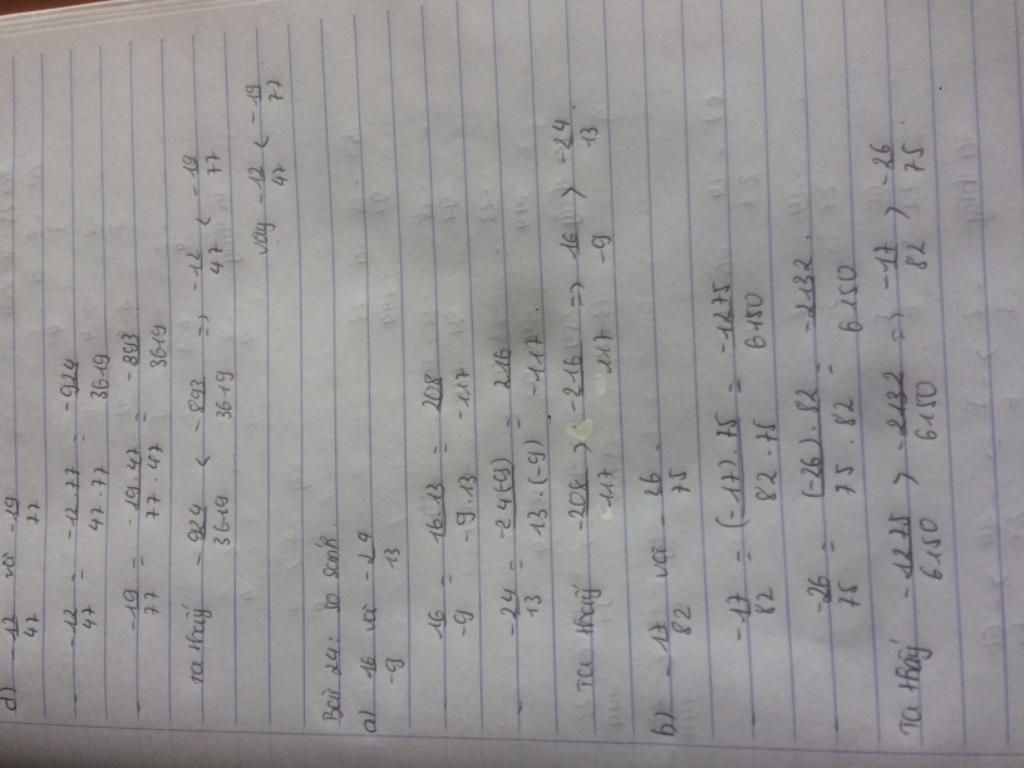 d) -12/47 và -19/77
-12/47 = -12.77/47.77 = -924/3619
-19/77 = -19.47/77.47 = -893/3619
Ta thấy -924/3619 < -893/3619 => -12/47 < -19/77
Vậy -12/47 < -19/77
Bài 24: So sánh
a) 16/-9 và -24/13
16/-9 = 16.13/-9.13 = 208/-117
-24/13 = -24(-9)/13.(-9) = 216/-117
Ta thấy -208/117 > -216/117 => 16/-9 > -24/13
b) -17/82 và -26/75
-17/82 = (-17).75/82.75 = -1275/6150
-26/75 = (-26).82/75.82 = -2132/6150
Ta thấy -1275/6150 > -2132/6150 => -17/82 > -26/75